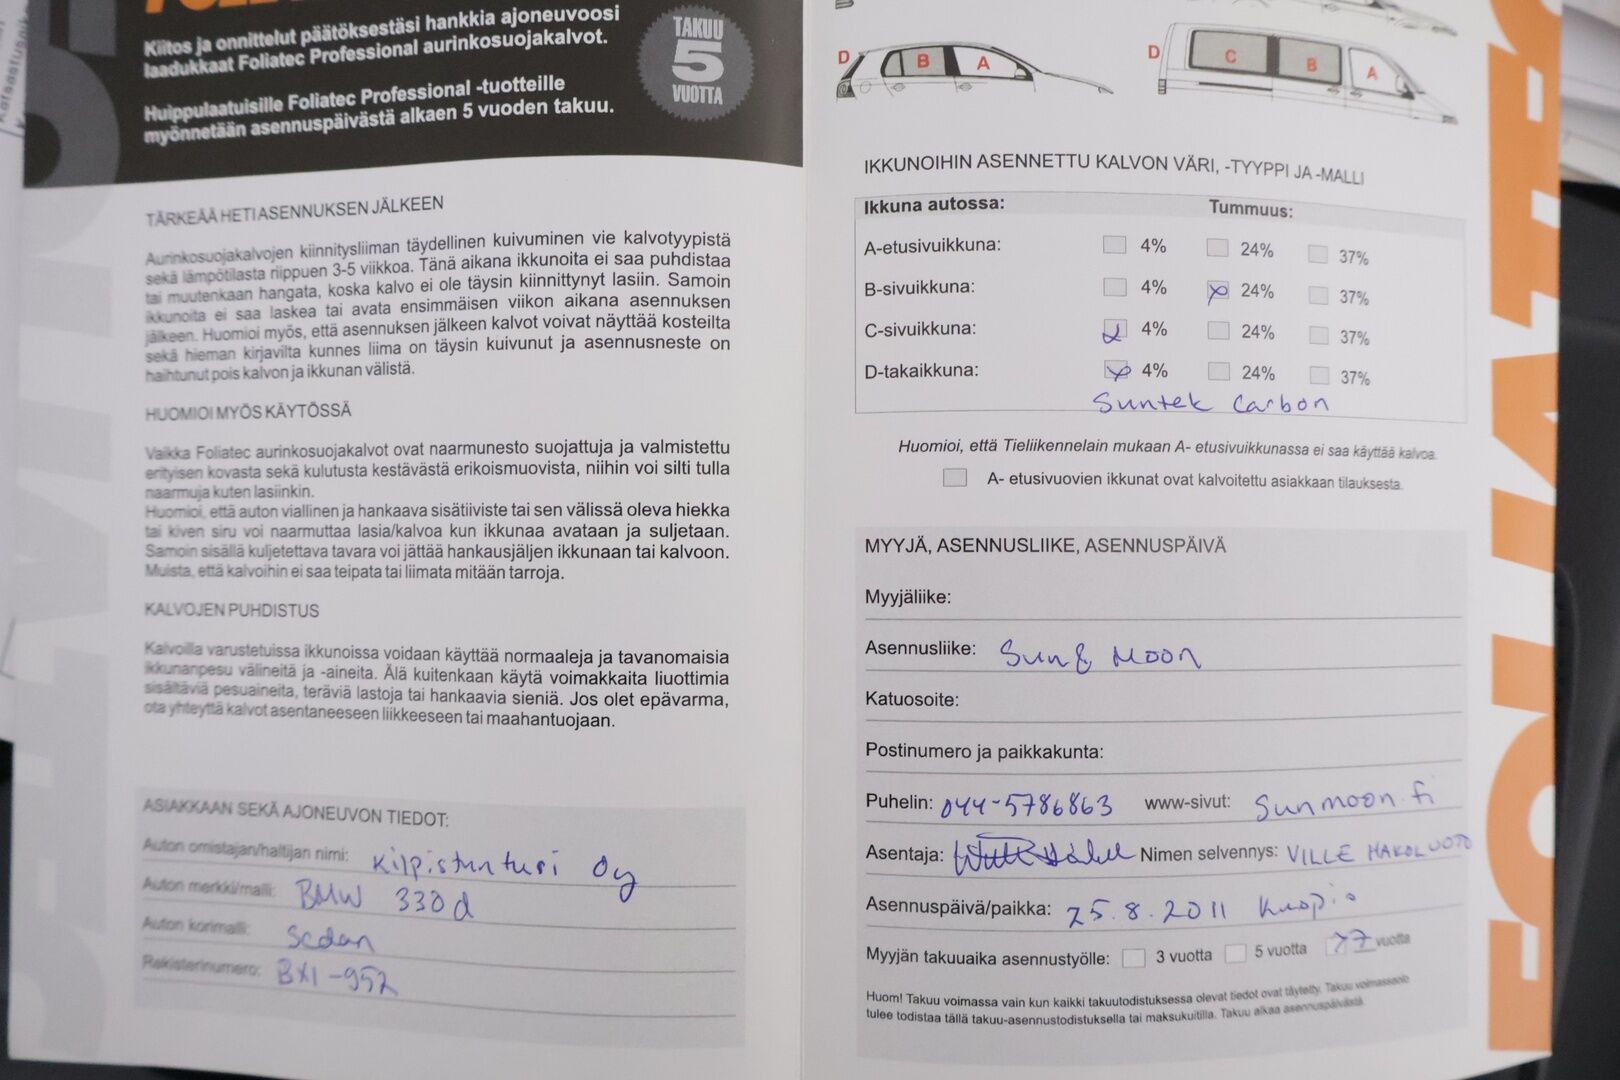 Kiitos ja onnittelut päätöksestäsi hankkia ajoneuvoosi
laadukkaat Foliatec Professional aurinkosuojakalvot.
Huippulaatuisille Foliatec Professional -tuotteille
myönnetään asennuspäivästä alkaen 5 vuoden takuu.
TAKUU
5
VUOTTA
TÄRKEÄÄ HETI ASENNUKSEN JÄLKEEN
Aurinkosuojakalvojen kiinnitysliiman täydellinen kuivuminen vie kalvotyypistä
sekä lämpötilasta riippuen 3-5 viikkoa. Tänä aikana ikkunoita ei saa puhdistaa
tai muutenkaan hangata, koska kalvo ei ole täysin kiinnittynyt lasiin. Samoin
ikkunoita ei saa laskea tai avata ensimmäisen viikon aikana asennuksen
jälkeen. Huomioi myös, että asennuksen jälkeen kalvot voivat näyttää kosteilta
sekä hieman kirjavilta kunnes liima on täysin kuivunut ja asennusneste on
haihtunut pois kalvon ja ikkunan välistä.
HUOMIOI MYÖS KÄYTÖSSÄ
Vaikka Foliatec aurinkosuojakalvot ovat naarmunesto suojattuja ja valmistettu
erityisen kovasta sekä kulutusta kestävästä erikoismuovista, niihin voi silti tulla
naarmuja kuten lasiinkin.
Huomioi, että auton viallinen ja hankaava sisätiiviste tai sen välissä oleva hiekka
tai kiven siru voi naarmuttaa lasia/kalvoa kun ikkunaa avataan ja suljetaan.
Samoin sisällä kuljetettava tavara voi jättää hankausjäljen ikkunaan tai kalvoon.
Muista, että kalvoihin ei saa teipata tai liimata mitään tarroja.
KALVOJEN PUHDISTUS
Kalvoilla varustetuissa ikkunoissa voidaan käyttää normaaleja ja tavanomaisia
ikkunanpesu välineitä ja -aineita. Älä kuitenkaan käytä voimakkaita liuottimia
sisältäviä pesuaineita, teräviä lastoja tai hankaavia sieniä. Jos olet epävarma,
ota yhteyttä kalvot asentaneeseen liikkeeseen tai maahantuojaan.
ASIAKKAAN SEKÄ AJONEUVON TIEDOT:
Auton omistajan/haltijan nimi: Kilpistunturi Oy
Auton merkki/malli: BMW 330d
Auton korimalli: Sedan
Rekisterinumero: BXI-952
D B A
D C B A
IKKUNOIHIN ASENNETTU KALVON VÄRI, -TYYPPI JA -MALLI
Ikkuna autossa: Tummuus:
A-etusivuikkuna: 4% 24% 37%
B-sivuikkuna: 4% x 24% 37%
C-sivuikkuna: x 4% 24% 37%
D-takaikkuna: x 4% 24% 37%
Suntek Carbon
Huomioi, että Tieliikennelain mukaan A- etusivuikkunassa ei saa käyttää kalvoa.
A- etusivuovien ikkunat ovat kalvoitettu asiakkaan tilauksesta.
MYYJÄ, ASENNUSLIIKE, ASENNUSPÄIVÄ
Myyjäliike:
Asennusliike: Sun & Moon
Katuosoite:
Postinumero ja paikkakunta:
Puhelin: 044-5786863 www-sivut: sunmoon.fi
Asentaja: Nimen selvennys: VILLE HAKOLUOTO
Asennuspäivä/paikka: 25.8.2011 Kuopio
Myyjän takuuaika asennustyölle: 3 vuotta 5 vuotta 7 vuotta
Huom! Takuu voimassa vain kun kaikki takuutodistuksessa olevat tiedot ovat täytetty. Takuu voimassaolo
tulee todistaa tällä takuu-asennustodistuksella tai maksukuitilla. Takuu alkaa asennuspäivästä.